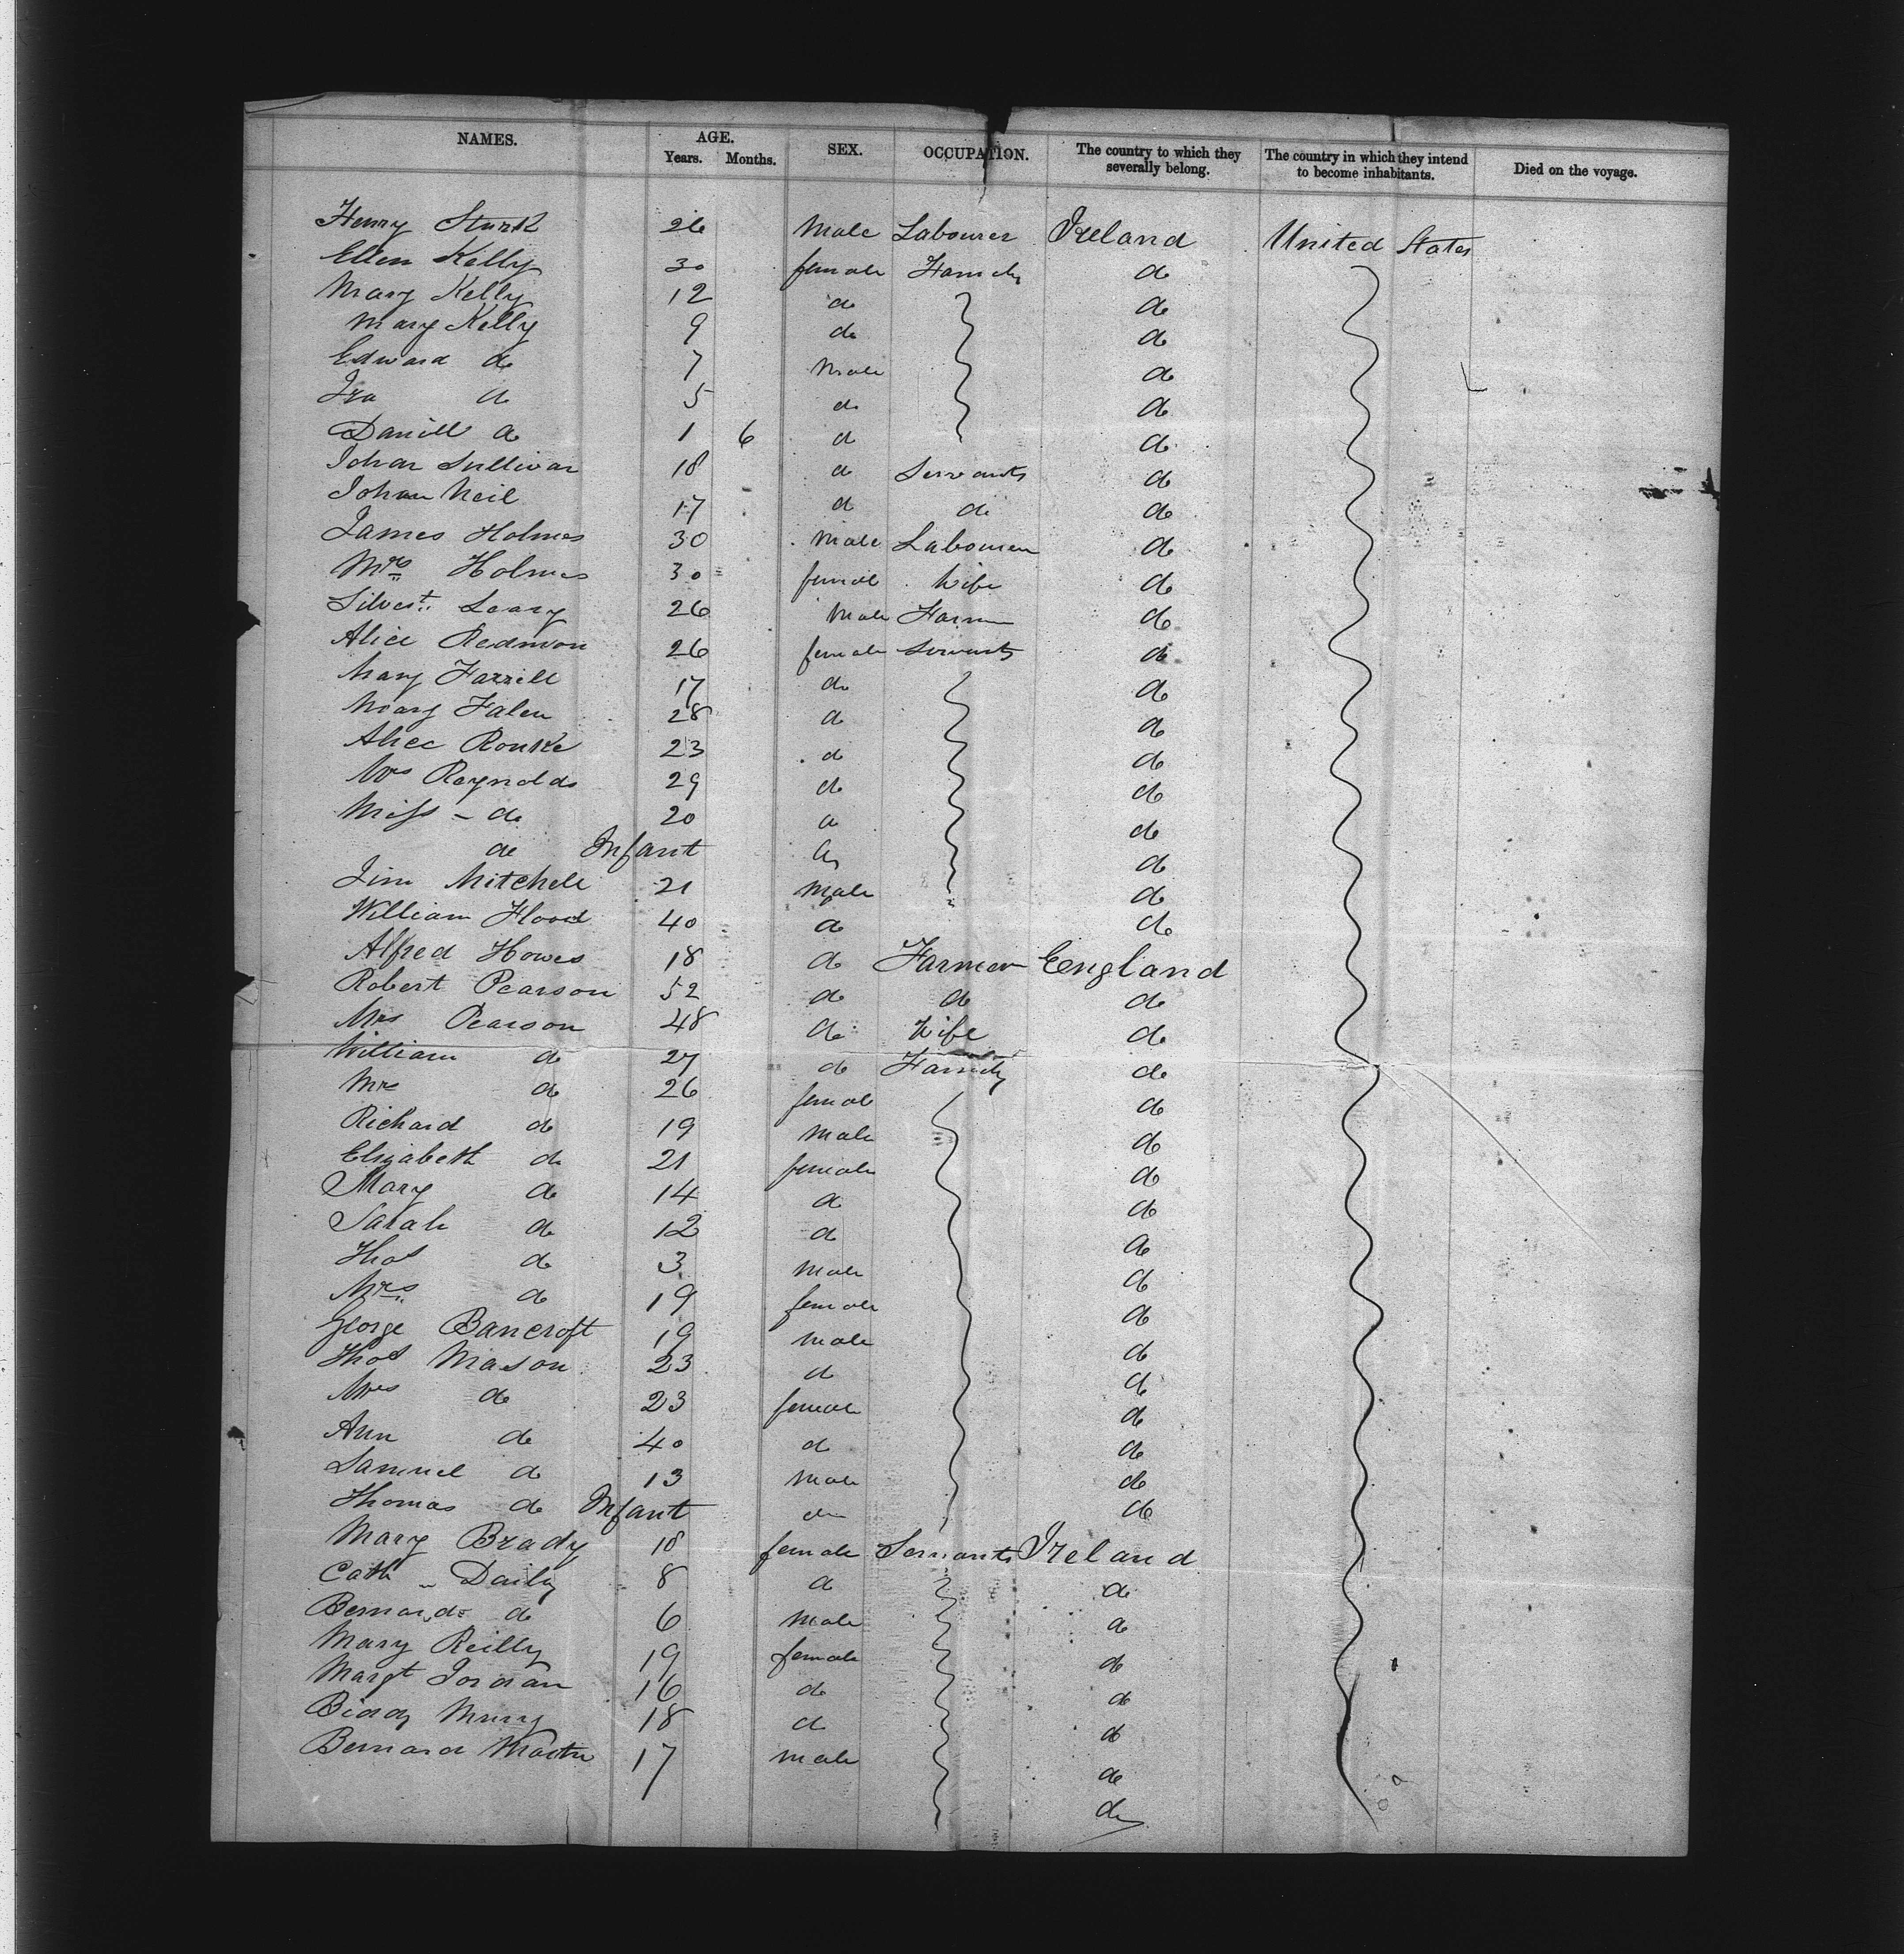 NAMES. AGE. Years. Months. SEX. OCCUPATION. The country to which they severally belong. The country in which they intend to become inhabitants. Died on the voyage.
Henry Sturk 26 Male Labourer Ireland United States
Ellen Kelly 30 female Family do
Mary Kelly 12 do do
Mary Kelly 9 do do
Edward do 7 Male do
Ira do 5 do do
Daniell do 1 6 do do
Johan Sullivan 18 do Servants do
Johan Neil 17 do do do
James Holmes 30 Male Labourer do
Mrs Holmes 30 female Wife do
Silvest Leary 26 Male Farmer do
Alice Redmon 26 female Servants do
Mary Farrill 17 do do
Mary Falen 28 do do
Alice Rourke 23 do do
Mrs Reynolds 29 do do
Miss - do 20 do do
do Infant do do
Jim Mitchell 21 Male do
William Flood 40 do do
Alfred Howes 18 do Farmer England
Robert Pearson 52 do do do
Mrs Pearson 48 do Wife do
William do 27 do Family do
Mrs do 26 female do
Richard do 19 Male do
Elizabeth do 21 female do
Mary do 14 do do
Sarah do 12 do do
Thos do 3 Male do
Mrs do 19 female do
George Bancroft 19 Male do
Thos Mason 23 do do
Mrs do 23 female do
Ann do 40 do do
Samuel do 13 Male do
Thomas do Infant do do
Mary Brady 18 female Servants Ireland
Cath Daily 8 do do
Bernard do 6 Male do
Mary Reilly 19 female do
Margt Jordan 16 do do
Biddy Murry 18 do do
Bernard Martin 17 male do
do